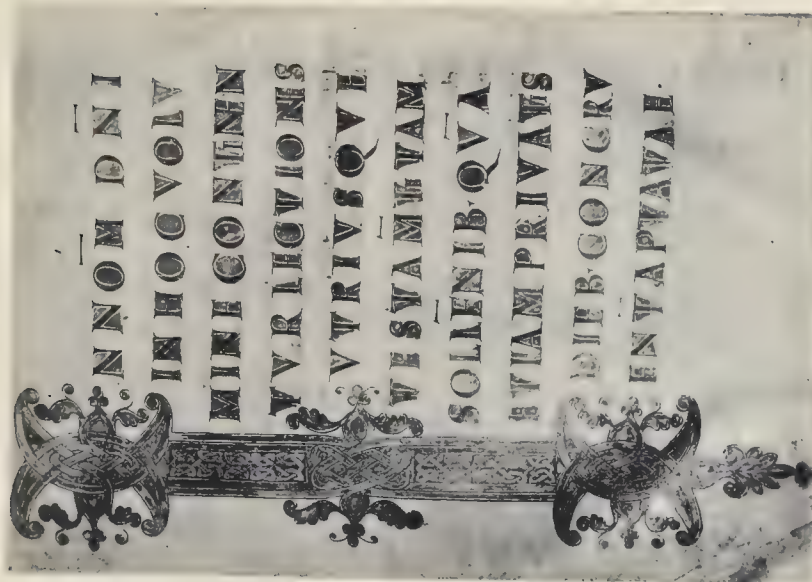 IN NOM̄ DN̄I
IN HOC VOLV
MINE CONTINEN
TVR LECTIONES
VTRIVSQVE
TESTAM̄TI TAM
SOLLĒNIB· QVĀ
ETIAM PRIVATIS
DIEB· CONGRV
ENT APTATAE